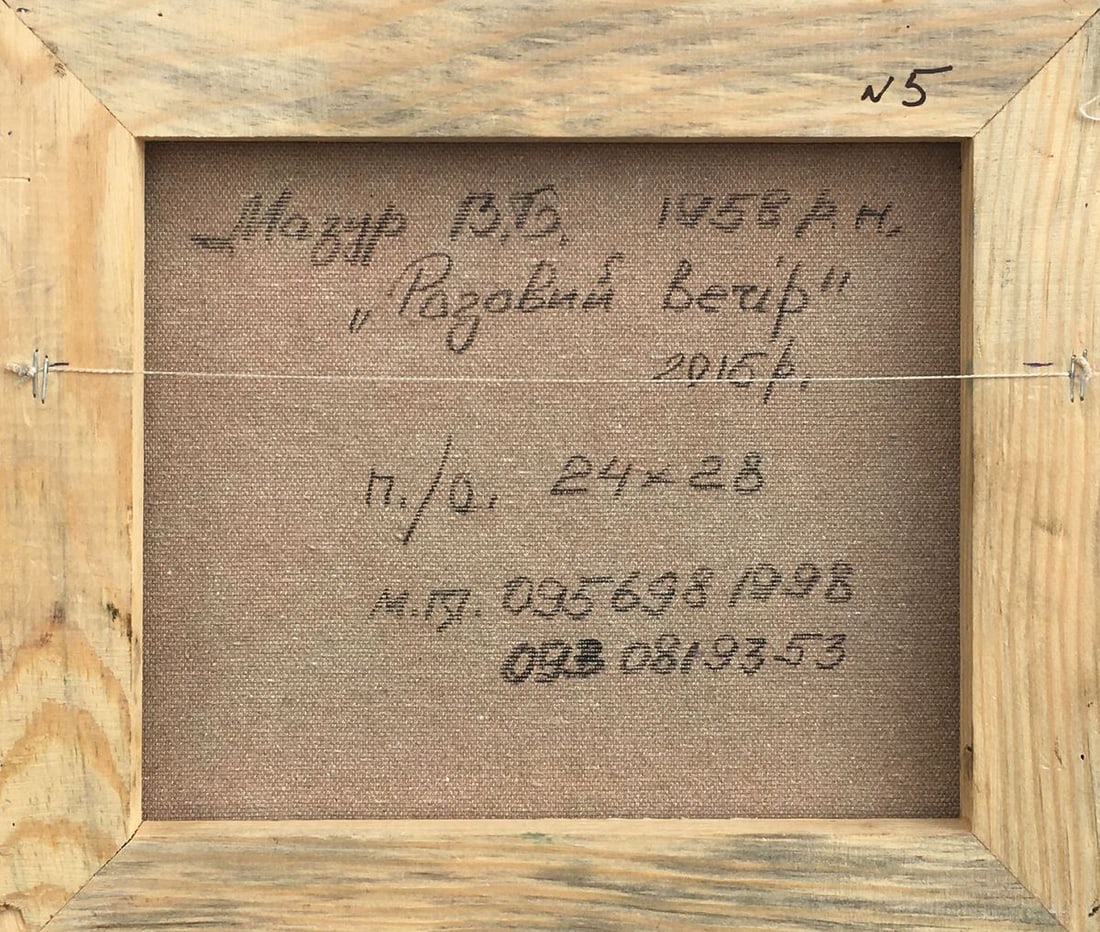 №5
Мазур В.Б. 1958 р.н.
„Розовий вечір"
2016р.
п./о. 24х28
м.т. 095 698 1998
093 0819353